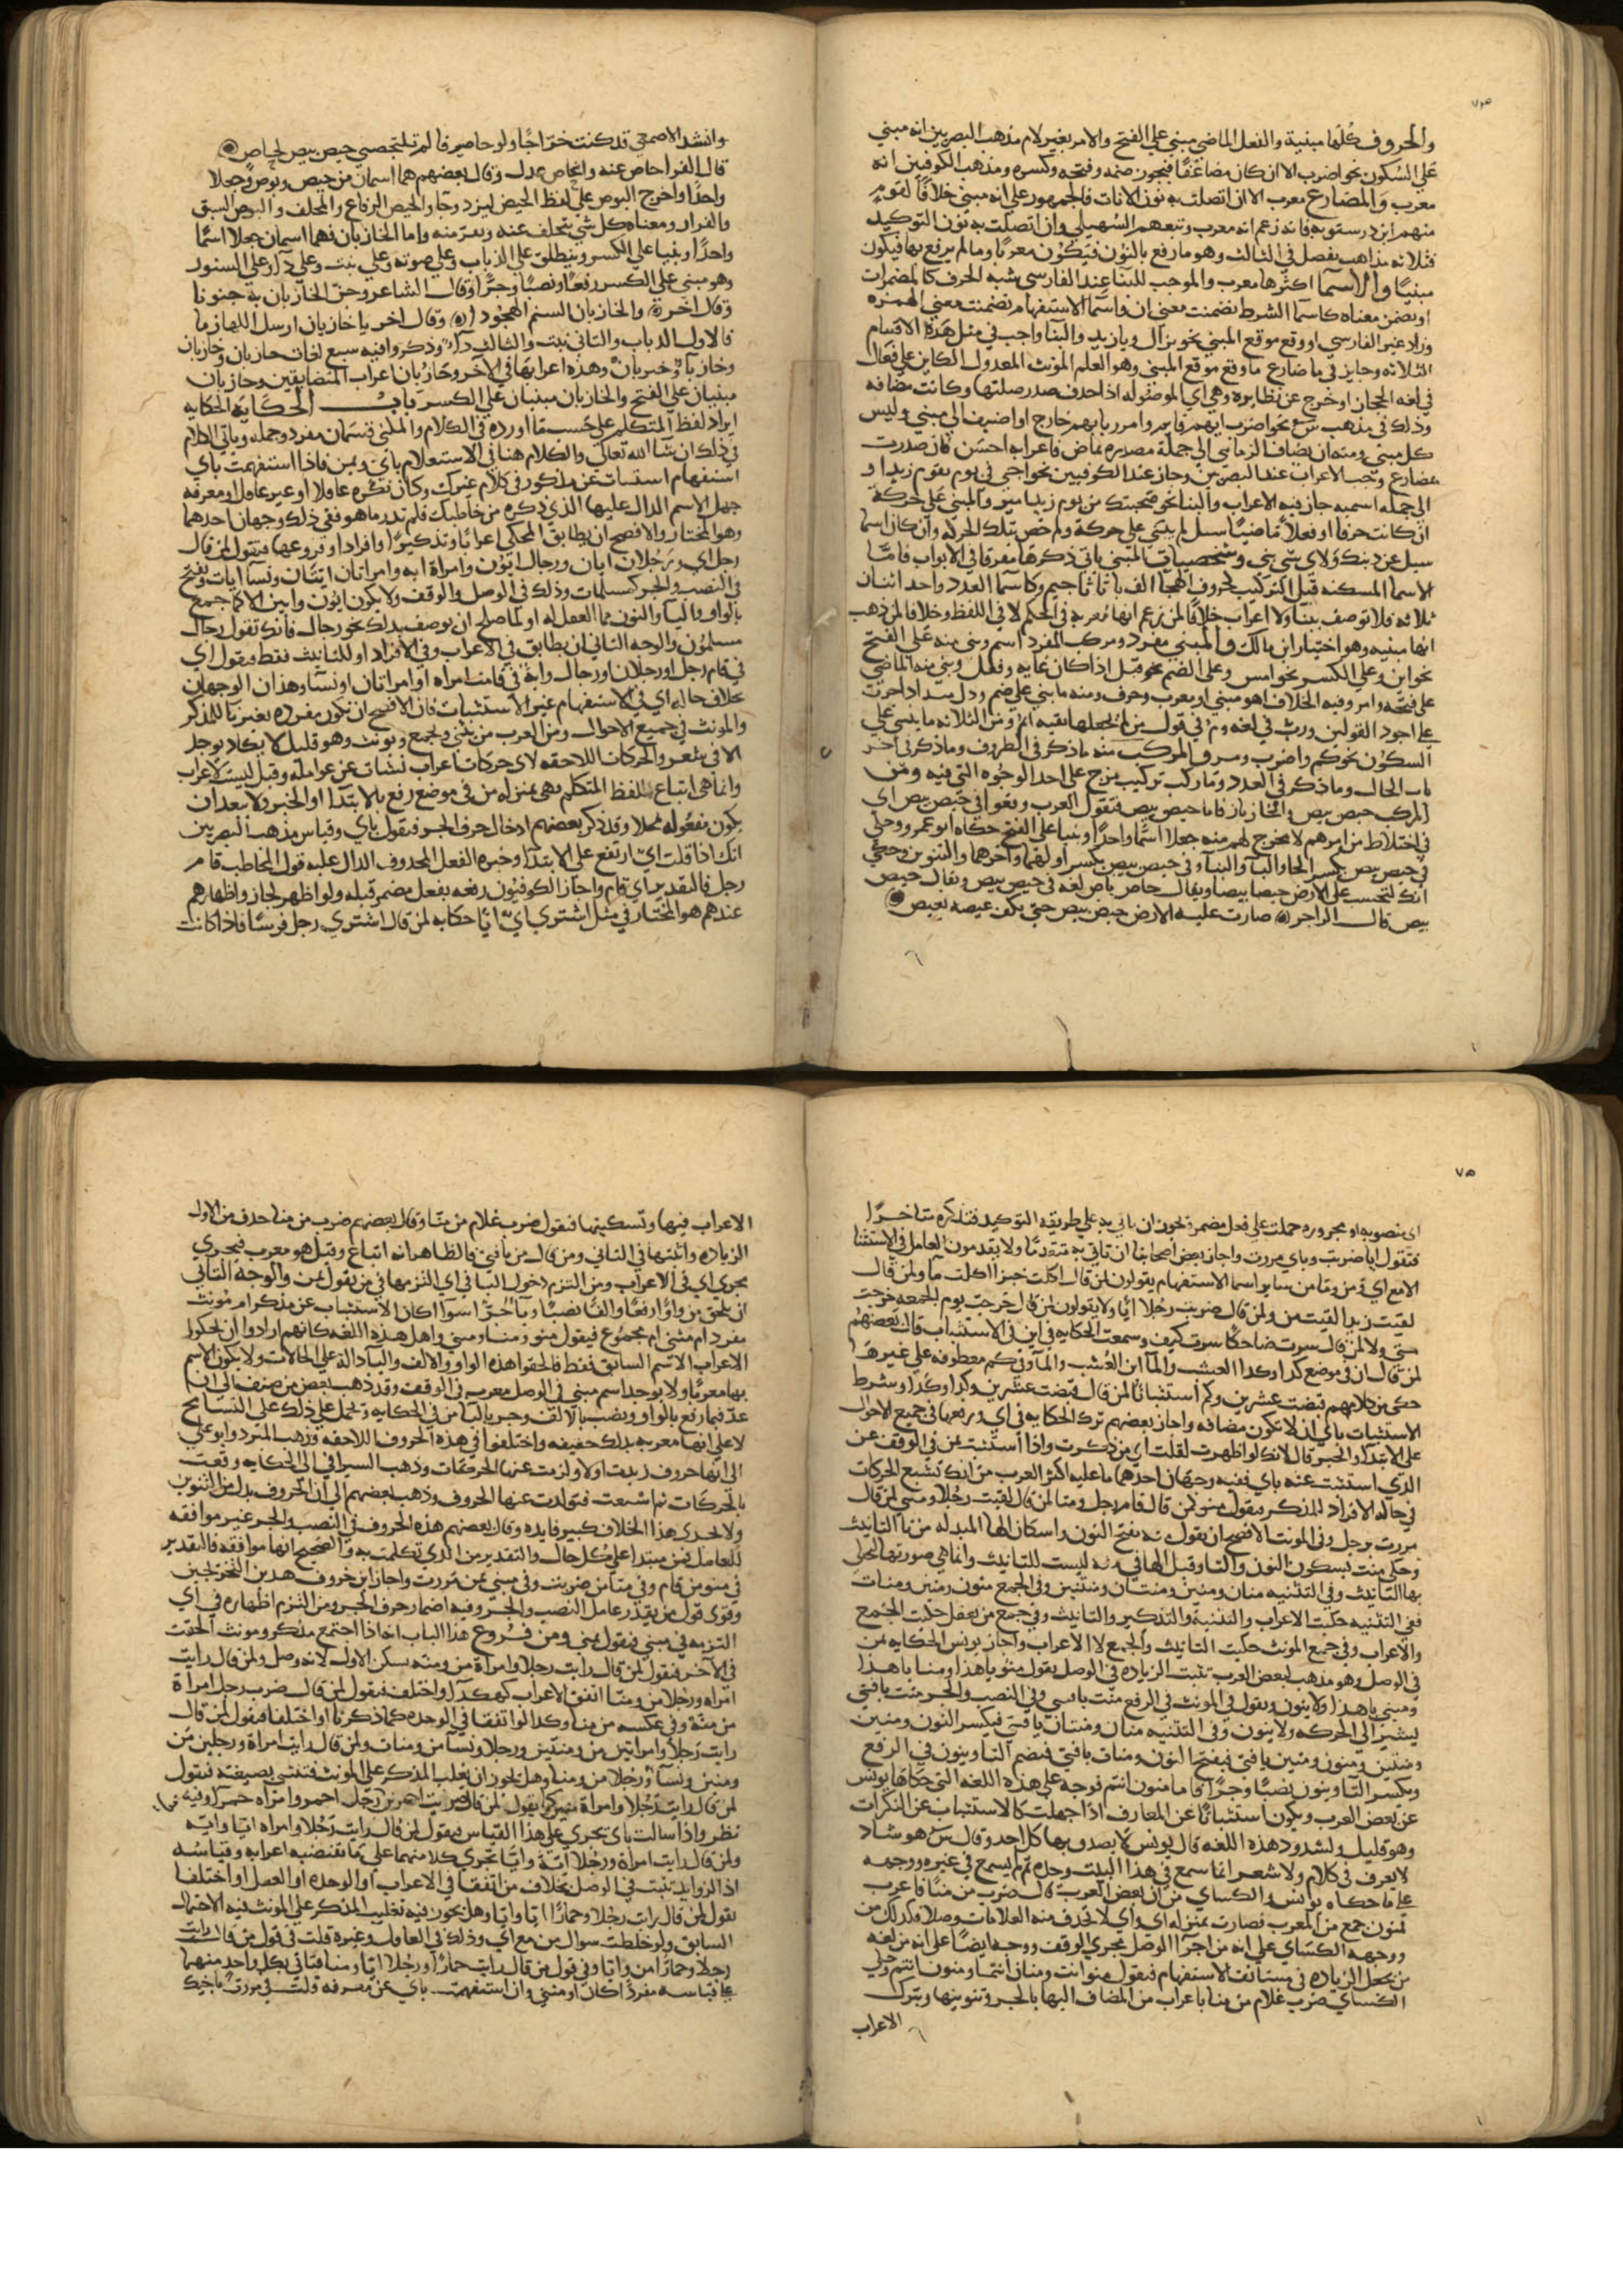 والحروف كلها مبنية والفعل الماضي مبني على الفتح والامر بغير لام مذهب البصريين انه مبني
على السكون نحو اضرب الا ان كان مضاعفا فيجوز ضمه وفتحه وكسره ومذهب الكوفيين انه
معرب والمضارع معرب الا ان اتصلت به نون الاناث فالجمهور على انه مبني خلافا لقوم
منهم ابن درستويه فانه زعم انه معرب وتبعهم السهيلي وان اتصلت به نون التوكيد
فثلاثه مذاهب يفصل في الثالث وهو ما رفع بالنون فيكون معربا وما لم يرفع بها فيكون
مبنيا والاسما اكثرها معرب والموجب للبنا عند الفارسي شبه الحرف كالمضمرات
او تضمن معناه كاسما الشرط تضمنت معنى ان واسما الاستفهام تضمنت معنى الهمزه
وزاد غير الفارسي او وقع موقع المبني نحو نزال ويا زيد والبنا واجب في مثل هذه الاقسام
الثلاثه وجايز في ما ضارع ما وقع موقع المبني وهو العلم المونث المعدول الكاين على فعال
في لغه الحجاز او خرج عن نظايره وهي اي الموصوله اذا حذف صدر صلتها وكانت مضافه
وذلك في مذهب س نحو اضرب ايهم قايم وامرر بايهم خارج او اضيف الى مبني وليس
كل مبني ومنه ان يضاف الزمان الى جملة مصدره بماض فاعرابه احسن فان صدرت
بمضارع وجب الاعراب عند البصريين وجاز عند الكوفيين نحو اجي في يوم يقوم زيد او
الى جمله اسميه جاز فيه الاعراب والبنا نحو صحبتك من يوم زيد امير والمبني على حركة
ان كانت حرفا او فعلا ماضيا سل لم بني على حركة ولم خص بتلك الحركه وان كان اسما
سيل عن ذينك ولاي شي بني وشخصيات المبني ياتي ذكرها مفرقا في الابواب فاما
الاسما المسكنه قبل التركيب كحروف الهجا الف با تا ثا جيم وكاسما العدد واحد اثنان
ثلاثه فلا توصف ببنا ولا اعراب خلافا لمن زعم انها معربه في الحكم لا في اللفظ وخلافا لمن ذهب
انها مبنيه وهو اختيار ابن مالك والمبني مفرد ومركب المفرد اسم وبني منه على الفتح
نحو اين وعلى الكسر نحو امس وعلى الضم نحو قبل اذا كان غايه وفعل وبني منه الماضي
على فتحه وامر وفيه الخلاف اهو مبني او معرب وحرف ومنه ما بني على ضم
على اجود القولين ورب في لغه وم في قول من لم يجعلها بقيه ايمن ومن الثلاثه ما بني على
السكون نحو كم واضرب المركب منه ما ذكر في الظروف وما ذكر في اخر
باب الحال وما ذكر في العدد وما ركب تركيب مزج على احد الوجوه التي فيه ومن
المركب حيص بيص والخاز باز فاما حيص بيص فتقول العرب وقعوا في حيص بيص اي
في اختلاط من امرهم لا مخرج لهم منه جعلا اسما واحدا وبنيا على الفتح حكاه ابو عمرو وحكي
في حيص بيص بكسر الحا والبا والبنا وفي حيص بيص بكسر اولهما واخرهما والتنوين وحكي
انك لتحسب على الارض حيصا بيصا ويقال حاص باص لغه في حيص بيص ويقال حيص
بيص قال الراجز صارت عليه الارض حيص بيص حتى يلف عيصه بعيص
وانشد الاصمعي قد كنت خراجا ولوجا صيرفا لم تلتحصني حيص بيص لحاص
قال الفرا حاص عنه وانحاص عدل وقال بعضهم هما اسمان من حيص وبوص وجعلا
واحدا واخرج البوص على لفظ الحيص ليزدوجا والحيص الرواغ والتخلف والبوص السبق
والفرار ومعناه كل شي يتخلف عنه ويفر منه واما الخاز باز فهما اسمان جعلا اسما
واحدا وبنيا على الكسر وينطلق على الذباب وعلى صوته وعلى نبت وعلى دآ وعلى السنور
وهو مبني على الكسر رفعا ونصبا وجرا وقال الشاعر وجن الخاز باز به جنونا
وقال اخر والخاز باز السنم المجودا وقال اخر يا خاز باز ارسل اللهازما
فالاول الذباب والثاني نبت والثالث دآ وذكروا فيه سبع لغات خاز باز وخاز باز
وخاز باء وخزباز وهذه اعرابها في الآخر وخاز باز اعراب المتضايفين وخاز باز
مبنيان على الفتح والخاز باز مبنيان على الكسر باب الحكايه الحكايه
ايراد لفظ المتكلم على حسب ما اورده في الكلام والمحكي قسمان مفرد وجمله وياتي الكلام
في ذلك ان شا الله تعالى والكلام هنا في الاستعلام باي وبمن فاذا استفهمت باي
استفهام استثبات عن مذكور في كلام غيرك وكان نكره عاقلا او غير عاقل او معرفه
جهل الاسم الدال عليها الذي ذكره من خاطبك فلم تدر ما هو ففي ذلك وجهان احدهما
وهو المختار والافصح ان يطابق المحكي اعرابا وتذكيرا وافرادا وفروعها فتقول لمن قال
رجل اي ورجلان ايان ورجال ايون وامراة ايه وامراتان ايتان ونسآ ايات وتفتح
في النصب والجر كمسلمات وذلك في الوصل والوقف ولا يكون ايون وايين الا لما جمع
بالواو واليا والنون مما العقل له او لما صلح ان يوصف بذلك نحو رجال فانك تقول رجال
مسلمون والوجه الثاني ان يطابق في الاعراب وفي الافراد او للتانيث فقط فيقول اي
في قام رجل او رجلان او رجال وايه في قامت امراه او امراتان او نسا وهذان الوجهان
بخلاف حاله اي في الاستفهام غير الاستثبات فان الافصح ان تكون مفرده بغير تا للمذكر
والمونث في جميع الاحوال ومن العرب من يثني ويجمع ويونث وهو قليل لا يكاد يوجد
الا في شعر والحركات اللاحقه لاي حركات اعراب نشات عن عوامله وقيل ليست لاعراب
وانما هي اتباع للفظ المتكلم فهي بمنزله من في موضع رفع بالابتدا او الخبر ولا يبعد ان
يكون مفعوله محلا وقد ذكر بعضهم ادخال حرف الجر فيقول باي وقياس مذهب البصريين
انك اذا قلت اي ارتفع على الابتدا وخبره الفعل المحذوف الدال عليه قول المخاطب قام
رجل فالتقدير اي قام واجاز الكوفيون رفعه بفعل مضمر قبله ولو اظهر لجاز واظهارهم
عندهم هو المختار في مثل اشترى اي ايا حكايه لمن قال اشترى رجل فرسا فاذا كانت
اي منصوبه او مجروره حملت على فعل مضمر ويجوز ان ياتي به على طريقه التوكيد فتذكره متاخرا
فتقول ايا ضربت وباي مررت واجاز بعض اصحابنا ان تاتي به متقدما ولا يقدمون العامل في الاستثنا
الا مع اي ومن وما من ساير اسما الاستفهام يقولون لمن قال اكلت خبزا اكلت ما ولمن قال
لقيت زيدا لقيت من ولمن قال ضربت رجلا ايا ولا يقولون لمن قال خرجت يوم الجمعه خرجت
متى ولا لمن قال سرت ضاحكا سرت كيف وسمعت الحكايه في اين في الاستثبات قال بعضهم
لمن قال ان في موضع كذا وكذا العشب والمآ اين العشب والمآ وفي كم معطوفه على غيرها
حكي من كلامهم قبضت عشرين وكم استثباتا لمن قال قبضت عشرين وكذا وكذا وشرط
الاستثبات باي ان لا تكون مضافه واجاز بعضهم ترك الحكايه في اي ورفعها في جميع الاحوال
على الابتدا والخبر قال لانك لو اظهرت لقلت اي من ذكرت واذا استثبت بمن في الوقف عن
الذي استثبت عنه باي ففيه وجهان احدهما ما عليه اكثر العرب من انك تشبع الحركات
في حاله الافراد المذكر فيقول منو لمن قال قام رجل ومنا لمن قال لقيت رجلا ومني لمن قال
مررت برجل وفي المونث الافصح ان يقول منه بفتح النون واسكان الها المبدله من تا التانيث
وحكي منت بسكون النون والتا وقيل الها في منه ليست للتانيث وانما هي صورتها لحكي
بها التانيث وفي التثنيه منان ومنين ومنتان ومنتين وفي الجمع منون ومنين ومنات
ففي التثنيه حكيت الاعراب والتثنيه والتذكير والتانيث وفي جمع من يعقل حكيت الجمع
والاعراب وفي جمع المونث حكيت التانيث والجمع لا الاعراب واجاز يونس الحكايه بمن
في الوصل وهو مذهب لبعض العرب تثبت الزياده في الوصل يقول منو يا هذا ومنا يا هذا
ومني يا هذا ولا ينون ويقول في المونث في الرفع منت يا فتى وفي النصب والجر منت يا فتى
يشير الى الحركه ولا ينون وفي التثنيه منان ومنتان يا فتى فيكسر النون ومنين
ومنتين ومنون ومنين يا فتى فيفتح النون ومنات يا فتى فيضم التا وينون في الرفع
ويكسر التا وينون نصبا وجرا فاما منون انتم فوجه على هذه اللغه التي حكاها يونس
عن بعض العرب ويكون استثباتا عن المعارف اذا جهلت كالاستثبات عن النكرات
وهو قليل ولشذوذ هذه اللغه قال يونس لا يصدق بها كل احد وقال س هو شاذ
لا يعرف في كلام ولا شعر انما سمع في هذا البيت وحده ثم لم يسمع في غيره ووجهه
على ما حكاه يونس والكساي من ان بعض العرب قال ضرب من منا فاعرب
فمنون جمع من المعرب فصارت بمنزله اي واي لا تحذف منه العلامات وصلا فكذلك من
ووجهه الكساي على انه من اجرآ الوصل مجرى الوقف ووجه ايضا على انه من لغه
من يجعل الزياده في مستانف الاستفهام فيقول منو انت ومنان انتما ومنون انتم وحكي
الكساي ضرب غلام من منا باعراب من المضاف اليها بالجر وتنوينها وبترك
الاعراب
الاعراب فيها وتسكينها فتقول ضرب غلام من منا وقال بعضهم ضرب من منا حذف من الاول
الزياده واثبتها في الثاني ومن قال من يا فتى فالظاهر انه اتباع وقيل هو معرب فيجري
مجرى اي في الاعراب ومن التزم دخول البا في اي التزمها في من يقول بمن والوجه الثاني
ان يلحق من واوا رفعا والفا نصبا ويآ جرا سوآ اكان الاستثبات عن مذكر ام مونث
مفرد ام مثنى ام مجموع فيقول منو ومنا ومني واهل هذه اللغه كانهم ارادوا ان يحكوا
الاعراب الاسم السابق فقط فالحقوا هذه الواو والالف واليا دالة على الحالات ولا يكون الاسم
بها معربا ولا يوجد اسم مبني في الوصل معرب في الوقف وقد ذهب بعض من صنف الى ان
عد فيما رفع بالواو ونصب بالالف وجر باليا من في الحكايه ويحمل على ذلك على التسامح
لا على انها معربه بذلك حقيقه واختلفوا في هذه الحروف اللاحقه فذهب المبرد وابو علي
الى انها حروف زيدت اولا ولزمت عنها الحركات وذهب السيرافي الى ان الحكايه وقعت
بالحركات ثم اشبعت فتولدت عنها الحروف وذهب بعضهم الى ان الحروف بدل من التنوين
ولا يجدي هذا الخلاف كبير فايده وقال بعضهم هذه الحروف في النصب والجر غير موافقه
للعامل فمن مبتدا على كل حال والتقدير من الذي تكلمت به والصحيح انها موافقه فالتقدير
في منو من قام وفي منا من ضربت وفي مني بمن مررت واجاز ابن خروف هذين التخريجين
وقوى قول من يقدر عامل النصب والجر وفيه اضمار حرف الجر ومن التزم اظهاره في اي
التزمه في مني فيقول بمني ومن فروع هذا الباب اذا اجتمع مذكر ومونث الحقت
في الآخر فيقول لمن قال رايت رجلا وامراة من ومنه يسكن الاول لانه وصل ولمن قال رايت
امراه ورجلا من ومنا اتفق الاعراب كهكذا او اختلف فيقول لمن قال ضرب رجل امراة
من منه وفي عكسه من منا وكذا لو اتفقا في الوحده كما ذكرنا او اختلفا فيقول لمن قال
رايت رجلا وامراتين من ومنتين ورجلا ونسآ من ومنات ولمن قال رايت امراة ورجلين من
ومنين ونسآ ورجلا من ومنا وهل يجوز ان يغلب المذكر على المونث فتثني بصيغته فيقول
لمن قال رايت رجلا وامراة منين كما يقول لمن قال ضربت احمرين رجل احمر وامراه حمرآ وفيه
نظر واذا سالت باي يجري على هذا القياس فيقول لمن قال رايت رجلا وامراه ايا وايه
ولمن قال رايت امراة ورجلا اية وايا تجري كلا منهما على ما تقتضيه اعرابه وقياسه
اذ الزوايد تثبت في الوصل بخلاف من اتفقا في الاعراب او الوحده او العمل او اختلفا
يقول لمن قال رايت رجلا وحمارا ايا وايا وهل يجوز فيه تغليب المذكر على المونث فيه الاحتمال
السابق ولو خلطت سوال من مع اي وذلك في العاقل وغيره قلت في قول من قال رايت
رجلا وحمارا من وايا وفي قول من قال رايت حمارا ورجلا ايا ومنا فتاتي بكل واحد منهما
على قياسه مفردا كان او مثنى وان استفهمت باي عن معرفه قلت في مررت باخيك